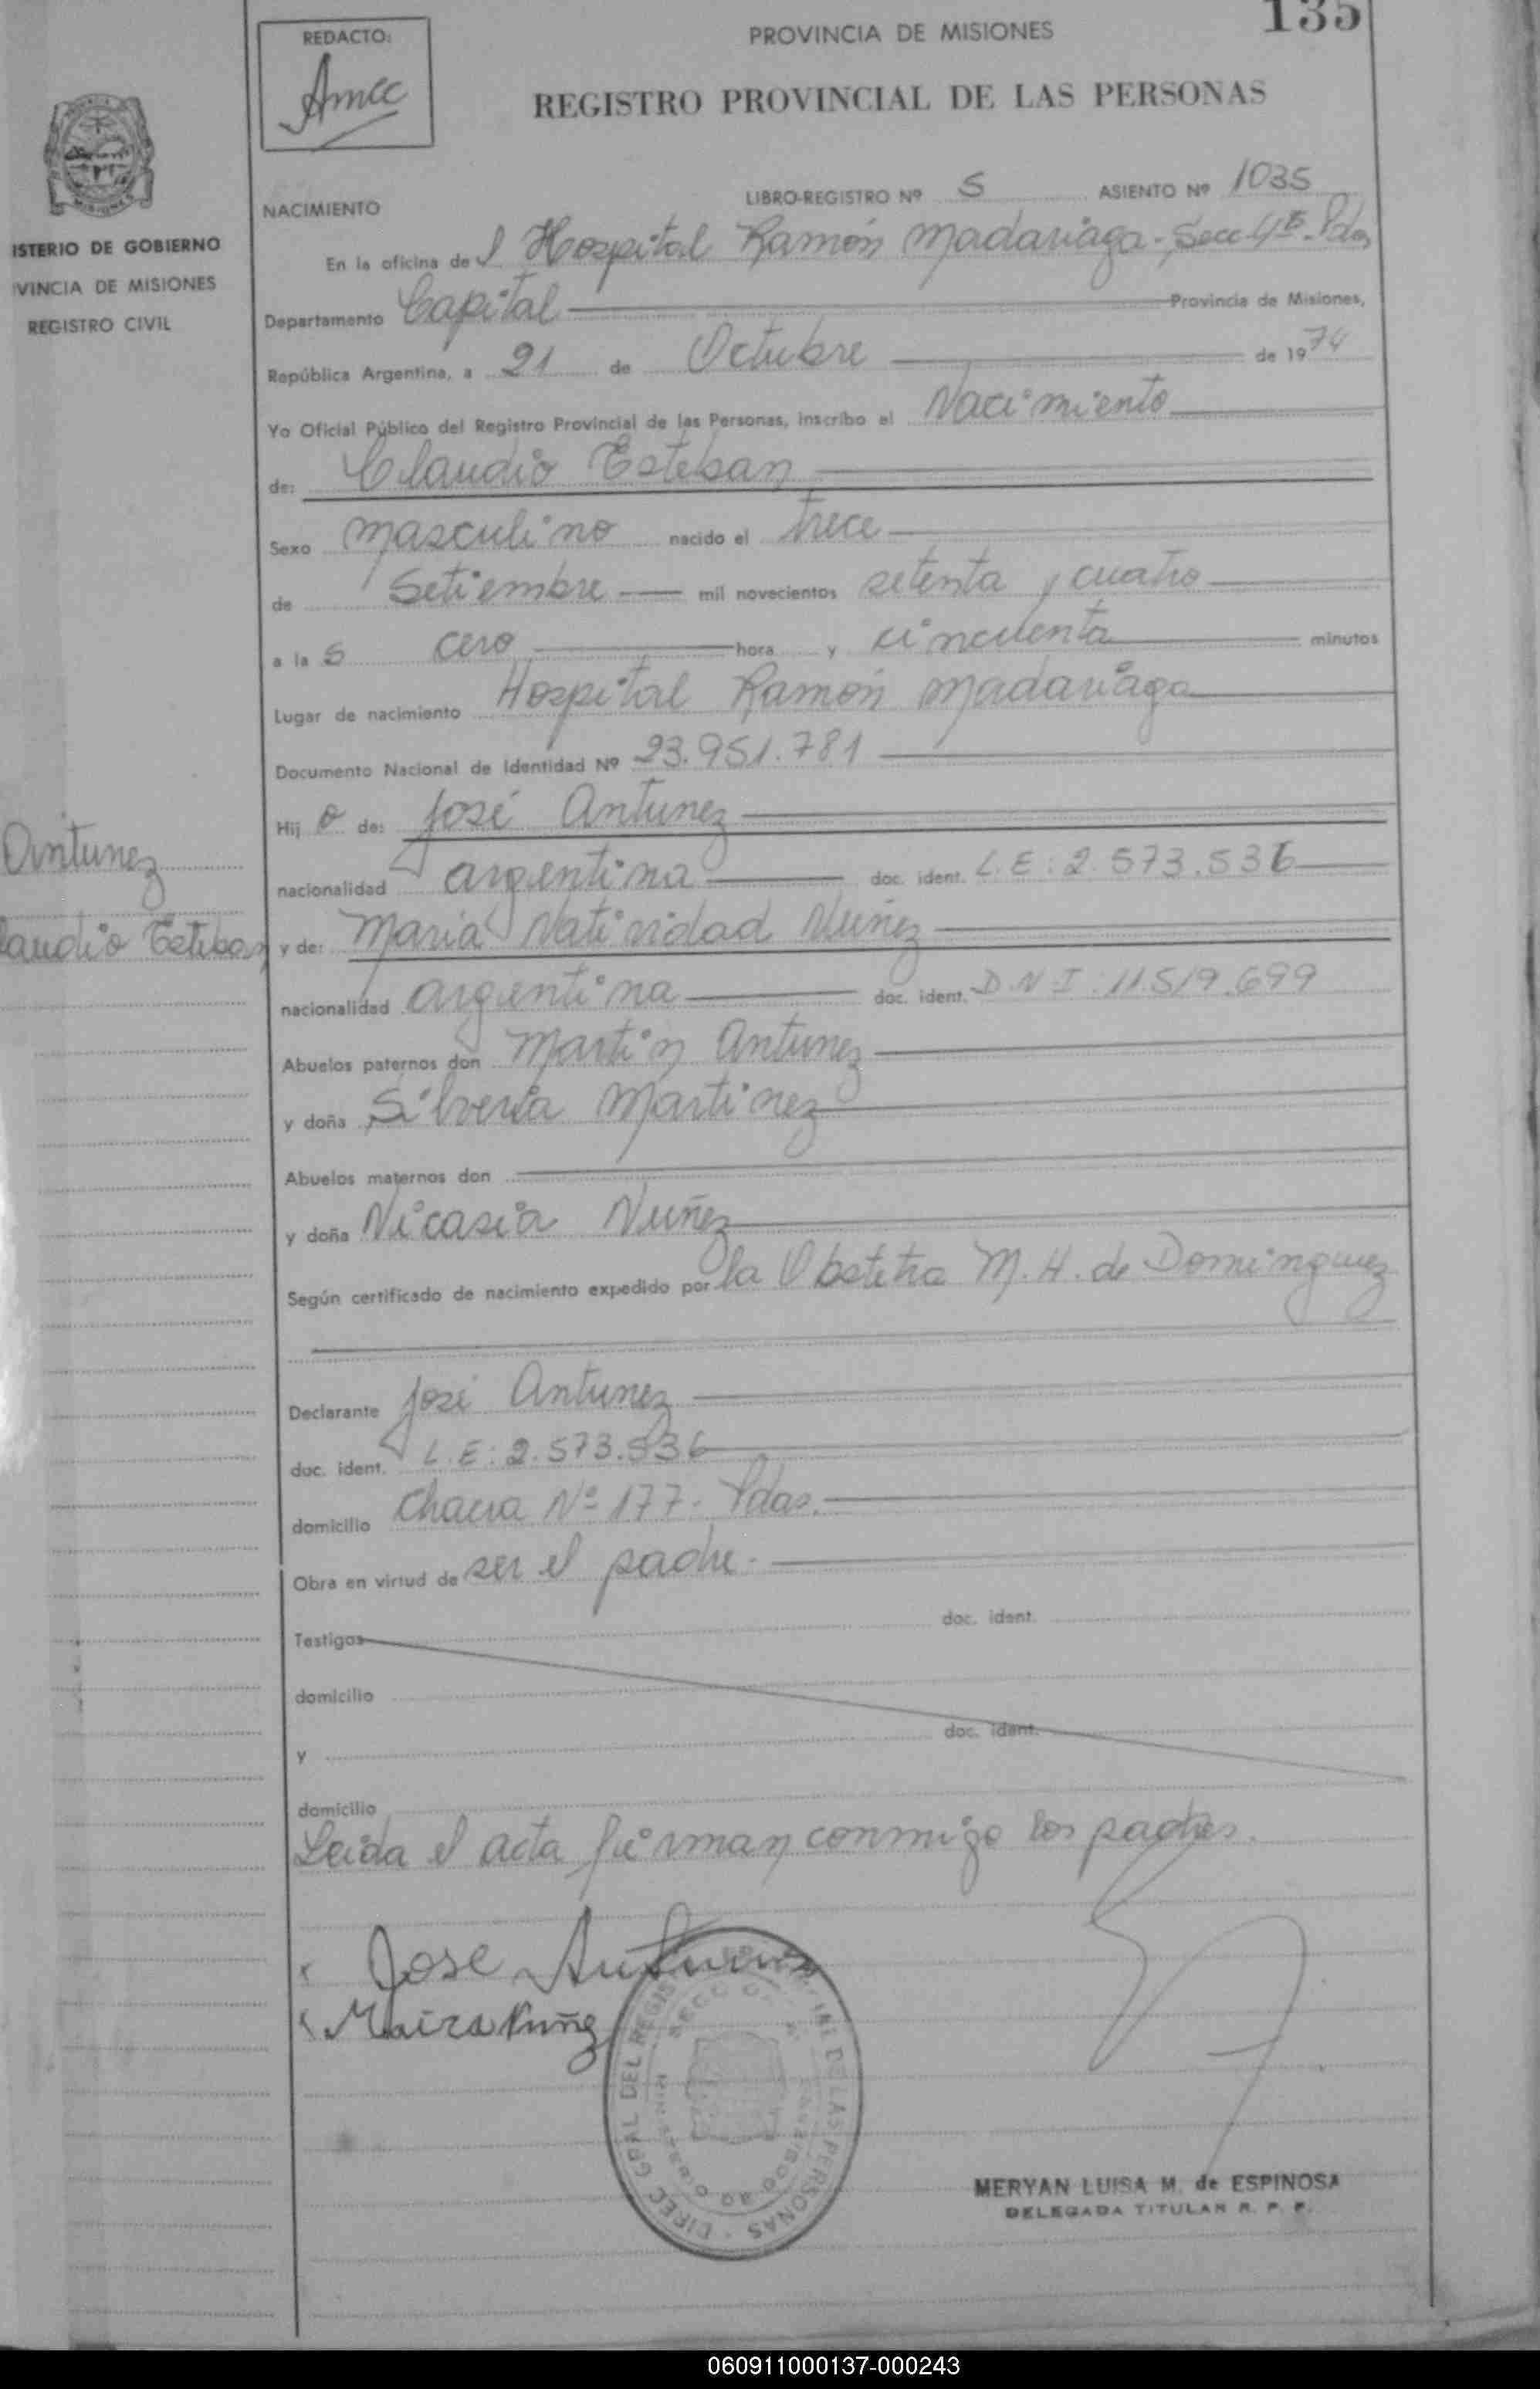 135
REDACTO:
Amcc
PROVINCIA DE MISIONES
REGISTRO PROVINCIAL DE LAS PERSONAS
ISTERIO DE GOBIERNO
VINCIA DE MISIONES
REGISTRO CIVIL
NACIMIENTO
LIBRO-REGISTRO Nº 5 ASIENTO Nº 1035
En la oficina del Hospital Ramón Madariaga - Secc 4ta Pdas
Departamento Capital Provincia de Misiones,
República Argentina, a 21 de Octubre de 1974
Yo Oficial Público del Registro Provincial de las Personas, inscribo el Nacimiento
de: Claudio Esteban
Sexo masculino nacido el trece
de Setiembre mil novecientos setenta y cuatro
a la s cero hora y cincuenta minutos
Lugar de nacimiento Hospital Ramón Madariaga
Documento Nacional de Identidad Nº 23.951.781
Hij o de: José Antunez
nacionalidad argentina doc. ident. L.E: 2.573.536
Antunez
laudio Esteban
y de: Maria Natividad Nuñez
nacionalidad argentina doc. ident. D.N.I. 11.519.699
Abuelos paternos don Martin Antunez
y doña Silveria Martinez
Abuelos maternos don
y doña Nicasia Nuñez
Según certificado de nacimiento expedido por la Obstetra M. H. de Dominguez
Declarante José Antunez
doc. ident. L.E: 2.573.536
domicilio Chacra Nº 177 - Pdas.
Obra en virtud de ser el padre.
Testigos doc. ident.
domicilio
y doc. ident.
domicilio
Leida el acta firman conmigo los padres.
Jose Antunez
Maira Nuñez
DIREC GRAL DEL REGIS DE LAS PERSONAS
MERYAN LUISA M. de ESPINOSA
DELEGADA TITULAR R. P. P.
060911000137-000243